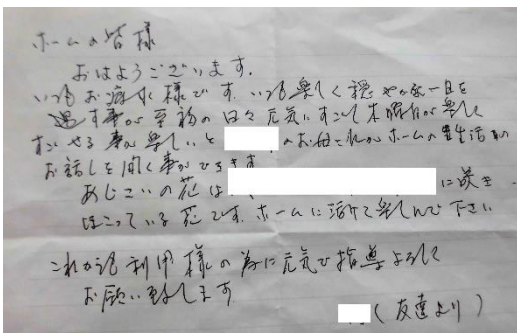 ホームの皆様
おはようございます.
いつもお疲れ様です. いつも楽しく穏やかな一日を
過す事が 至福の日々元気にすごして 本 が楽しく
すごせる事が楽しいと のお母 ホームの 生活の
お話しを聞く事ができます
あじさいの花は に咲き
ほこっている花です. ホームに活けて楽しんで下さい
これからも利用様の為に元気で指導よろしく
お願い致します
(友達より)